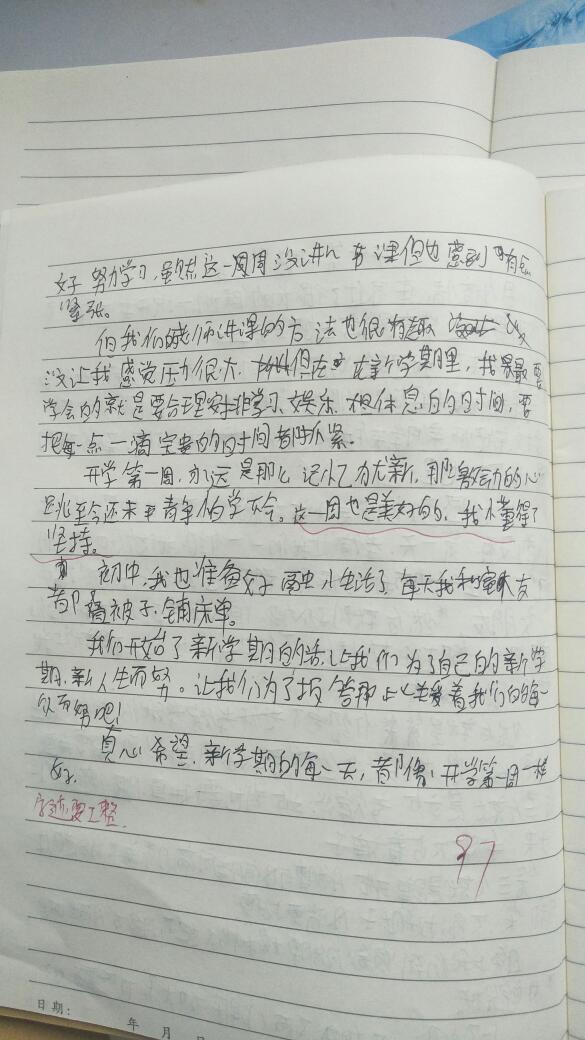 好努力学习,虽然这一周周没讲 课但也感到有
紧张。
但我们的老师讲课的方法也很有趣
没让我感觉压力很大,但在 在新学期里,我最要
学会的就是要合理安排学习、娱乐、和休息的时间,要
把每一点一滴宝贵的时间都抓紧。
开学第一周,永远是那么记忆犹新,那激动的心
跳至今还未 学会。这一周也是美好的,我懂得了
坚持。
初中,我也准备好 生活了,每天我和室友
都 被子,铺床单。
我们开始了新学期的 让我们为了自己的新学
期,新人生而努 。让我们为了报答那些关爱着我们的每一
而努 吧!
真心希望,新学期的每一天,都像 开学第一周一样
好。
字迹要工整。
97
日期: 年 月